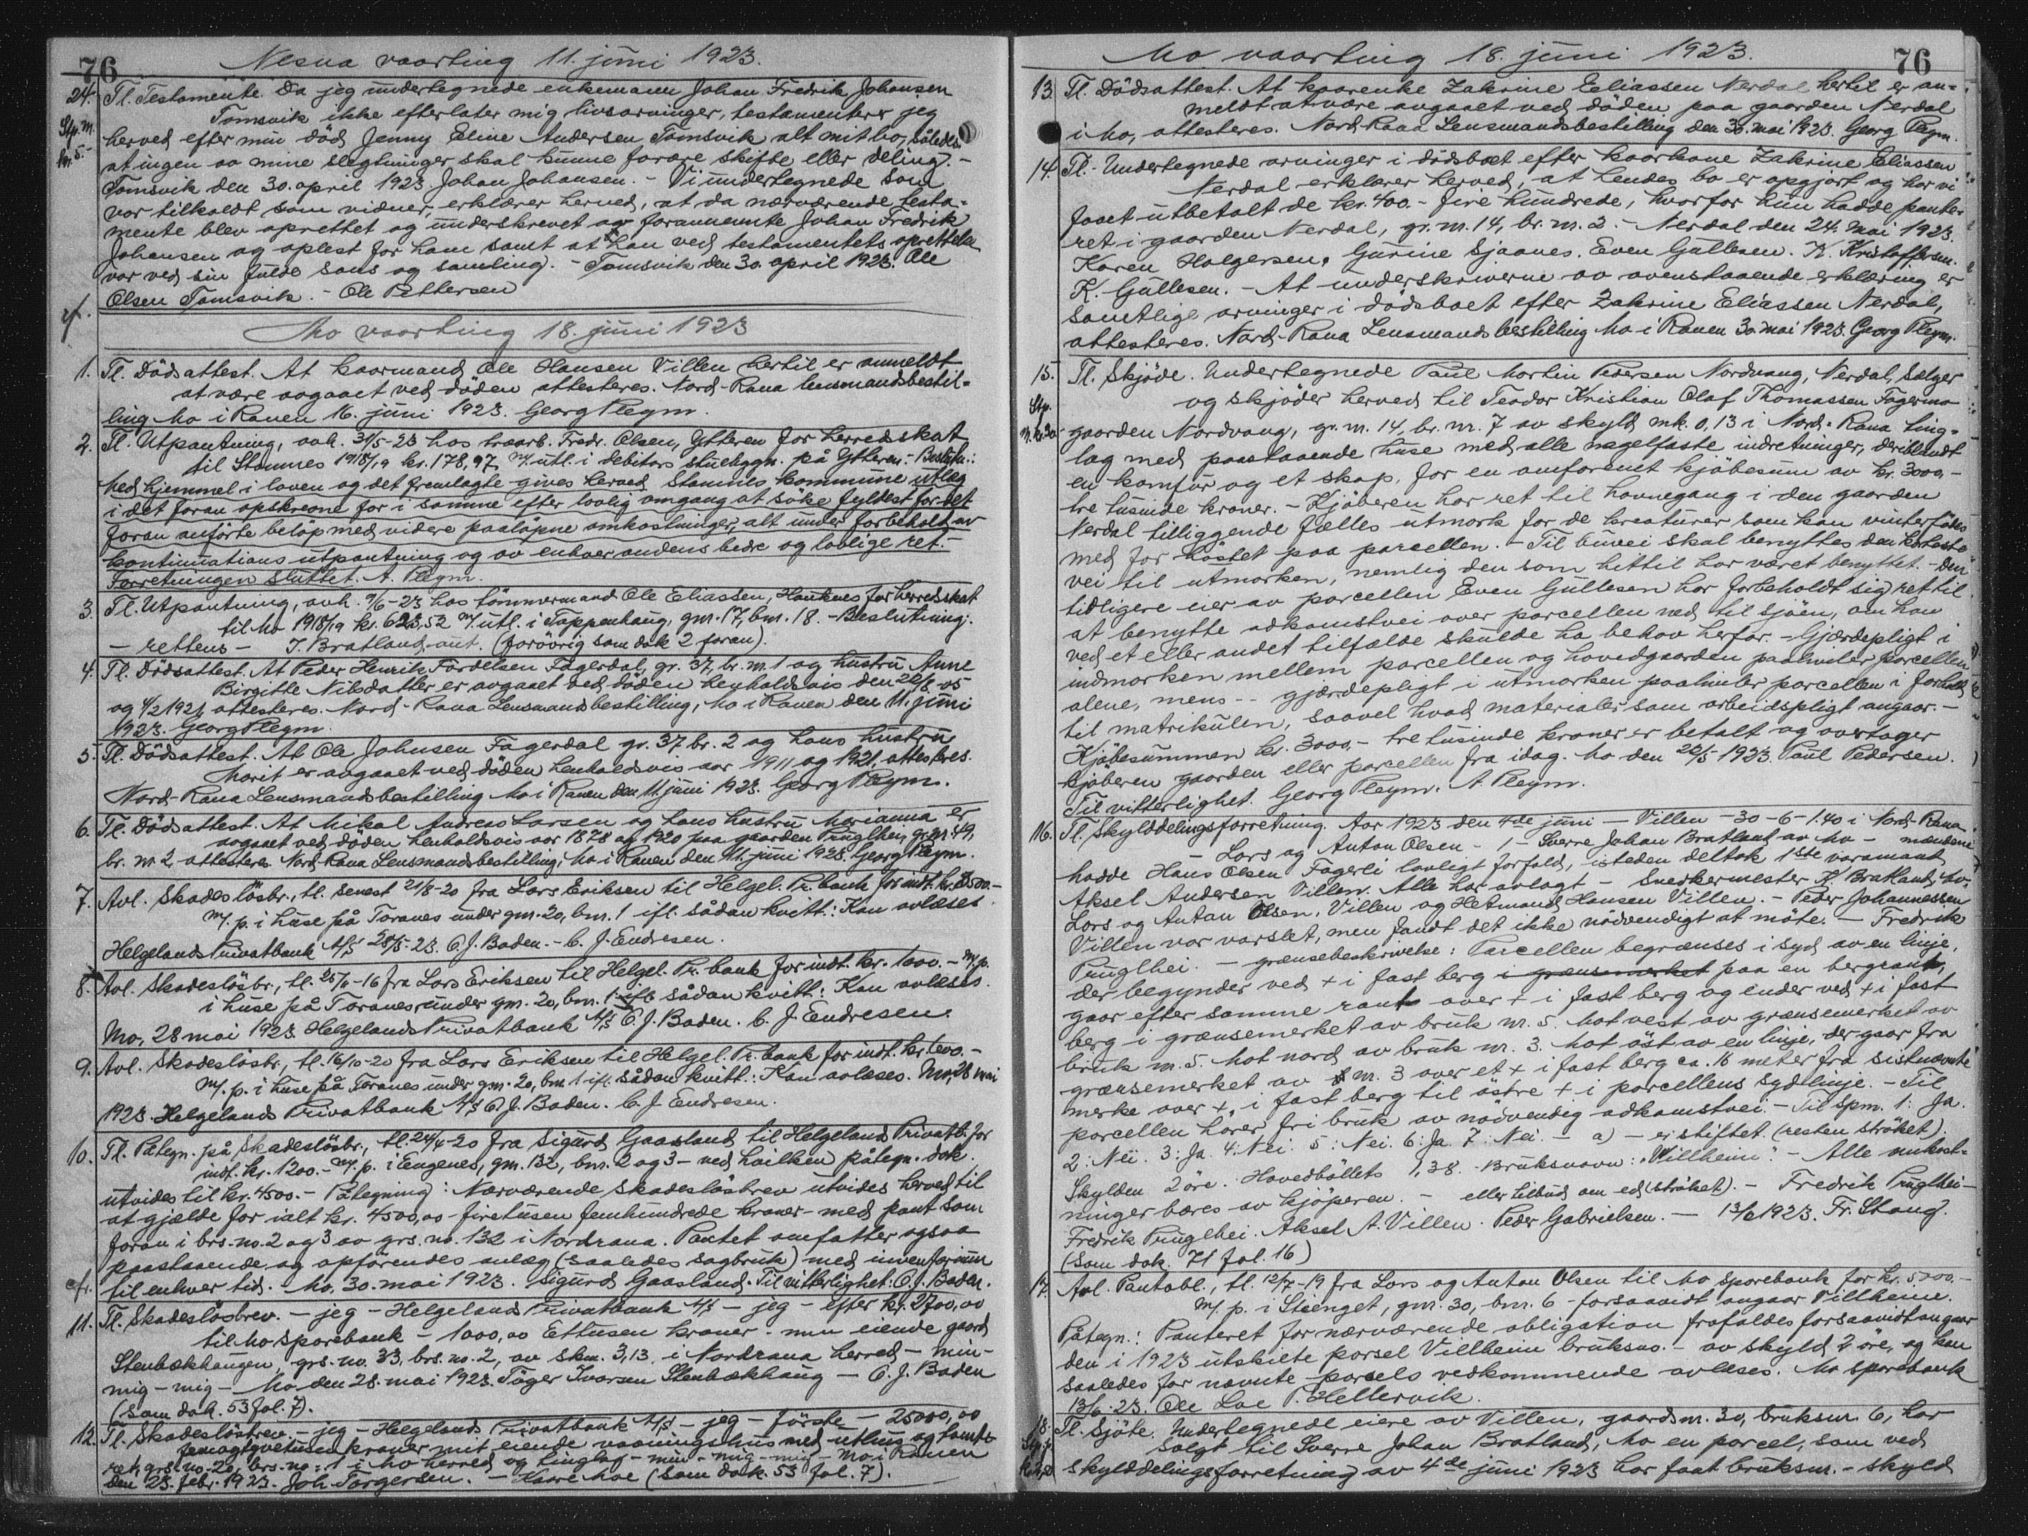 76
Nesna vaarting 11. juni 1923.
24. Tl. Testamente. Da jeg undertegnede enkemann Johan Fredrik Johansen
Stp. m. Tomsvik ikke efterlater mig livsarvinger, testamenterer jeg
kr. 5.- herved efter min död Jenny Eline Andersen Tomsvik alt mit bo, således
at ingen av mine slegtninger skal kunne forare skifte eller deling. -
Tomsvik den 30. april 1923. Johan Johansen. - Vi undertegnede som
var tilkaldt som vidner, erklærer herved, at da nærværende testa-
mente blev oprettet og underskrevet av forannevnte Johan Fredrik
Johansen og oplest for ham samt at han ved testamentets oprettelse
var ved sin fulde sans og samling. - Tomsvik den 30. april 1923. Ole
Olsen Tomsvik. - Ole Pettersen
Mo vaarting 18. juni 1923
1. Tl. Dödsattest. At kaarmand Ole Hansen Villen hertil er anmeldt,
at være avgaaet ved döden attesteres. Nord-Rana lensmandsbestil-
ling Mo i Ranen 16. juni 1923. Georg Pleym.
2. Tl. Utpantning, avh. 31/5-23 hos Fredr. Olsen, Ytteren for herredskat
til Stamnes 1918/19 kr. 178,97 m/ utl. i debitors stuebygn. på Ytteren. Beslutn.:
Ved hjemmel i loven og det fremlagte gives herved Stamnes kommune utlæg
i det foran opskrevne for i samme efter lovlig omgang at söke fyldest for det
foran anförte belöp med videre paalöpne omkostninger, alt under forbehold av
kontinuations utpantning og av enhver andens bedre og lovlige ret. -
Forretningen sluttet. A. Pleym.
3. Tl. Utpantning, avh. 9/6-23 hos tömmermand Ole Eliassen, Hauknes for herredsskat
til Mo 1918/19 kr. 623,52 m/ utl. i Tappenhaug, gnr. 17, bnr. 18. - Beslutning:
- rettens - J. Bratland, aut. (forövrig som dok 2 foran).
4. Tl. Dödsattest. At Peder Henrik Fordelsen Fagerdal, gr. 37, br. nr. 1 og hustru Anne
Birgitte Nilsdatter er avgaaet ved döden henholdsvis den 22/8-05
og 4/2 1921 attesteres. Nord-Rana Lensmandsbestilling, Mo i Ranen den 11. juni
1923. Georg Pleym
5. Tl. Dödsattest. At Ole Johnsen Fagerdal gr. 37 br. 2 og hans hustru
Marit er avgaaet ved döden henholdsvis aar 1911 og 1921, attesteres.
Nord-Rana Lensmandsbestilling Mo i Ranen den 11 juni 1923. Georg Pleym.
6. Tl. Dödsattest. At Mikal Andreas Larsen og hans hustru Marianna er
avgaaet ved döden henholdsvis aar 1878 og 1920 paa gaarden Pruglhei gr. nr. 49,
br. nr 2 attesteres Nord-Rana Lensmandsbestilling, Mo i Ranen den 11. juni 1923. Georg Pleym.
7. Avl. Skadeslösbr., tl. senest 21/8-20 fra Lars Eriksen til Helgel. Pr. bank for indt. kr.
m/ p. i huse på Toranes under gnr. 20, bnr. 1 ifl. sådan kvitt.: Kan avlæses.
Helgelands Privatbank A/S 28/5-23. O. J. Baden. - C. J. Endresen.
8. Avl. Skadeslösbr., tl. fra Lars Eriksen til Helgel. Pr. bank for indt. kr. 1000.- m/ p.
i huse på Toranes, under gnr. 20, bnr. 1 ifl sådan kvitt.: Kan avlæses.
Mo, 28 mai 1923 Helgelands Privatbank A/S O. J. Baden. C. J. Endresen.
9. Avl. Skadeslösbr., tl. 16/10-20 fra Lars Eriksen til Helgel. Pr. bank for indt. kr.
m/ p. i huse på Toranes under gnr. 20, bnr. 1 ifl. sådan kvitt.: Kan avlæses. Mo, 28 mai
1923. Helgelands Privatbank A/S O. J. Baden. C. J. Endresen.
10. Tl. Påtegn. på Skadeslösbr., tl. 24/6-20 fra Sigurd Gaasland til Helgeland Privatb. for
indt. kr. 1200.- m/ p. i Engenes, gnr. 132, bnr. 2 og 3 - ved hvilken påtegn. dok.
utvides til kr. 4500.- Påtegning: Nærværende skadeslösbrev utvides herved til
at gjælde for ialt kr. 4500,00 - firetusen femhundrede kroner - med pant som
foran i brs. no. 2 og 3 av grs. no. 132 i Nordrana. Pantet omfatter ogsaa
paastaaende og opförendes anlæg (saaledes sagbruk) med inventarium
til enhver tid. Mo, 30. mai 1923. Sigurd Gaasland. Til vitterlighet: O. J. Baden.
11. Tl. Skadeslösbrev. - jeg - Helgeland Privatbank A/S - jeg - efter kr. 2700,00
til Mo Sparebank - 1000,00 Ettusen kroner - min eiende gaard
Stenbækhaugen, grs. no. 33, brs. no. 2, av skm. 3,13, i Nordrana herred - min -
mig - mig - Mo den 28. mai 1923. Tåger Ivarsen Stenbækhaug - O. J. Baden
(Som dok. 53 fol. 7).
12. Tl. Skadeslösbrev. - jeg - Helgeland Privatbank A/S - jeg - förste - 25000,00
femogtyvetusen kroner mit eiende vaaningshus med uthus og tomte-
ret, grs. no. 20 brs. no. 1 i Mo herred og tinglag - min - mig - mig - Mo i Ranen
den 23. febr. 1923. Joh Torgersen. - Kaare Moe (som dok. 53 fol. 7).
Mo vaarting 18. juni 1923.
76
13. Tl. Dödsattest. At kaarenke Zakrine Eliassen Nerdal hertil er an-
meldt at være avgaaet ved döden paa gaarden Nerdal
i Mo, attesteres. Nord-Rana Lensmandsbestilling den 30. mai 1923. Georg Pleym.
14. Tl. Undertegnede arvinger i dödsboet efter kaarkone Zakrine Eliassen
Nerdal erklærer herved, at hendes bo er opgjort og har vi
faaet utbetalt de kr. 400.- fire hundrede, hvorfor hun hadde pante-
ret i gaarden Nerdal, gr. nr. 14, br. nr. 2. - Nerdal den 24. mai 1923.
Karen Holgersen. Gurine Sjaanes. Even Gullesen. K. Kristoffersen.
K. Gullesen. - At underskriverne av ovenstaaende erklæring er
samtlige arvinger i dödsboet efter Zakrine Eliassen Nerdal,
attesteres. Nord-Rana Lensmandsbestilling Mo i Ranen 30 mai 1923. Georg Pleym.
15. Tl. Skjöde. Undertegnede Paul Martin Pedersen Nordvang, Nerdal, sælger
Stp. og skjöder herved til Teodor Kristian Olaf Thomassen Fagermo
gaarden Nordvang, gr. nr. 14, br. nr. 7 av skyld mk. 0,13 i Nord-Rana ting-
lag med paastaaende huse med alle nagelfaste indretninger, deriblandt
en komfur og et skap, for en omforenet kjöbesum av kr. 3000,-
tre tusinde kroner. - Kjöberen har ret til havnegang i den gaarden
Nerdal tilliggende fælles utmark for de kreaturer som kan vinterfödes
med for höstet paa parcellen. - Til buvei skal benyttes den korteste
vei til utmarken, nemlig den som hittil har været benyttet. - Den
tidligere eier av parcellen Even Gullesen har forbeholdt sig ret til
at benytte adkomstvei over parcellen ned til sjöen, om han
ved et eller andet tilfælde skulde ha behov herfor. - Gjærdepligt i
indmarken mellem parcellen og hovedgaarden paahviler parcellen
alene, mens -- gjærdepligt i utmarken paahviler parcellen i forhold
til matrikulen, saavel hvad materialer som arbeidspligt angaar. -
Kjöbesummen kr. 3000,- tre tusinde kroner er betalt og overtager
kjöberen gaarden eller parcellen fra idag. Mo den 22/5 1923. Paul Pedersen.
Til vitterlighet. Georg Pleym. A. Pleym.
16. Tl. Skylddelingsforretning. Aar 1923 den 4de juni - Villen - 30 - 6 - 1.40 i Nord-Rana
Lars og Anton Olsen - 1 - Sverre Johan Bratland av Mo - mændene
hadde Hans Olsen Fagerli lovligt forfald, isteden deltok 1ste varamand
Aksel Andersen Villen. Alle har avlagt - Snedkermester K. Bratland, Mo.
Lars og Anton Olsen, Villen og Hetmand Hansen Villen. - Peder Johannessen
Villen var varslet, men fandt det ikke nödvendigt at möte. - Fredrik
Pruglhei. - grænsebeskrivelse: Parcellen begrænses i syd av en linje,
der begynder ved + i fast berg i grænsemerket paa en bergrant,
gaar efter samme rant over + i fast berg og ender ved + i fast
berg i grænsemerket av bruk nr. 5. Mot vest av grænsemerket av
bruk nr. 5. Mot nord av bruk nr. 3. Mot öst av en linje, der gaar fra
grænsemerket av nr. 3 over et + i fast berg ca. 16 meter fra sistnevnte
merke over +, i fast berg til östre + i parcellens sydlinje. - Til
parcellen hörer fri bruk av nödvendig adkomstvei. - Til spm. 1: Ja.
2: Nei. 3: Ja. 4: Nei. 5: Nei. 6: Ja. 7: Nei. - a) - er stiftet. (resten ströket).
Skylden 2 öre. Hovedböllets 1,38. - Bruksnavn: "Villheim". - Alle omkost-
ninger bæres av kjöperen. - eller tilbud om ed (ströket). - Fredrik Pruglhei -
Fredrik Pruglhei. Aksel A. Villen. Peder Gabrielsen. - 13/6 1923. Fr. Stang.
(Som dok. 71 fol. 16)
17. Avl. Pantobl., tl. 12/7-19 fra Lars og Anton Olsen til Mo Sparebank for kr. 5000.-
m/ p. i Stienget, gnr. 30, bnr. 6 - forsaavidt angaar Villheim.
Påtegn.: Panteret for nærværende obligation frafaldes forsaavidt angaar
den i 1923 utskilte parsel Villheim bruksno. - av skyld 2 öre, og kan
saaledes for nævnte parsels vedkommende avlæses. Mo Sparebank
13/6-23. Ole Loe P. Hellervik.
18. Tl. Sjöte. Undertegnede eiere av Villen, gaardsnr. 30, bruksnr. 6, har
solgt til Sverre Johan Bratland, Mo en parcel, som ved
skylddelingsforretning av 4de juni 1923 har faat bruksnr. - skyld